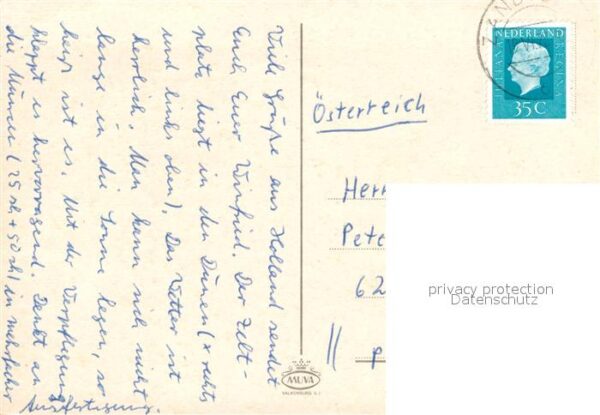 Viele Grüße aus Holland sendet
Euch Euer Winfried. Der Zelt-
platz liegt in den Dünen (x rechts
und links oben). Das Wetter ist
herrlich. Man kann sich nicht
lange in die Sonne legen, so
heiß ist es. Mit der Verpflegung
klappt es hervorragend. Denkt an
die Münzen (25 + 50) in mehrfacher
Ausfertigung.
Österreich
Herr
Pete
62
P
ZAND
NEDERLAND
JULIANA REGINA
35 C
MUVA
VALKENBURG
privacy protection
Datenschutz